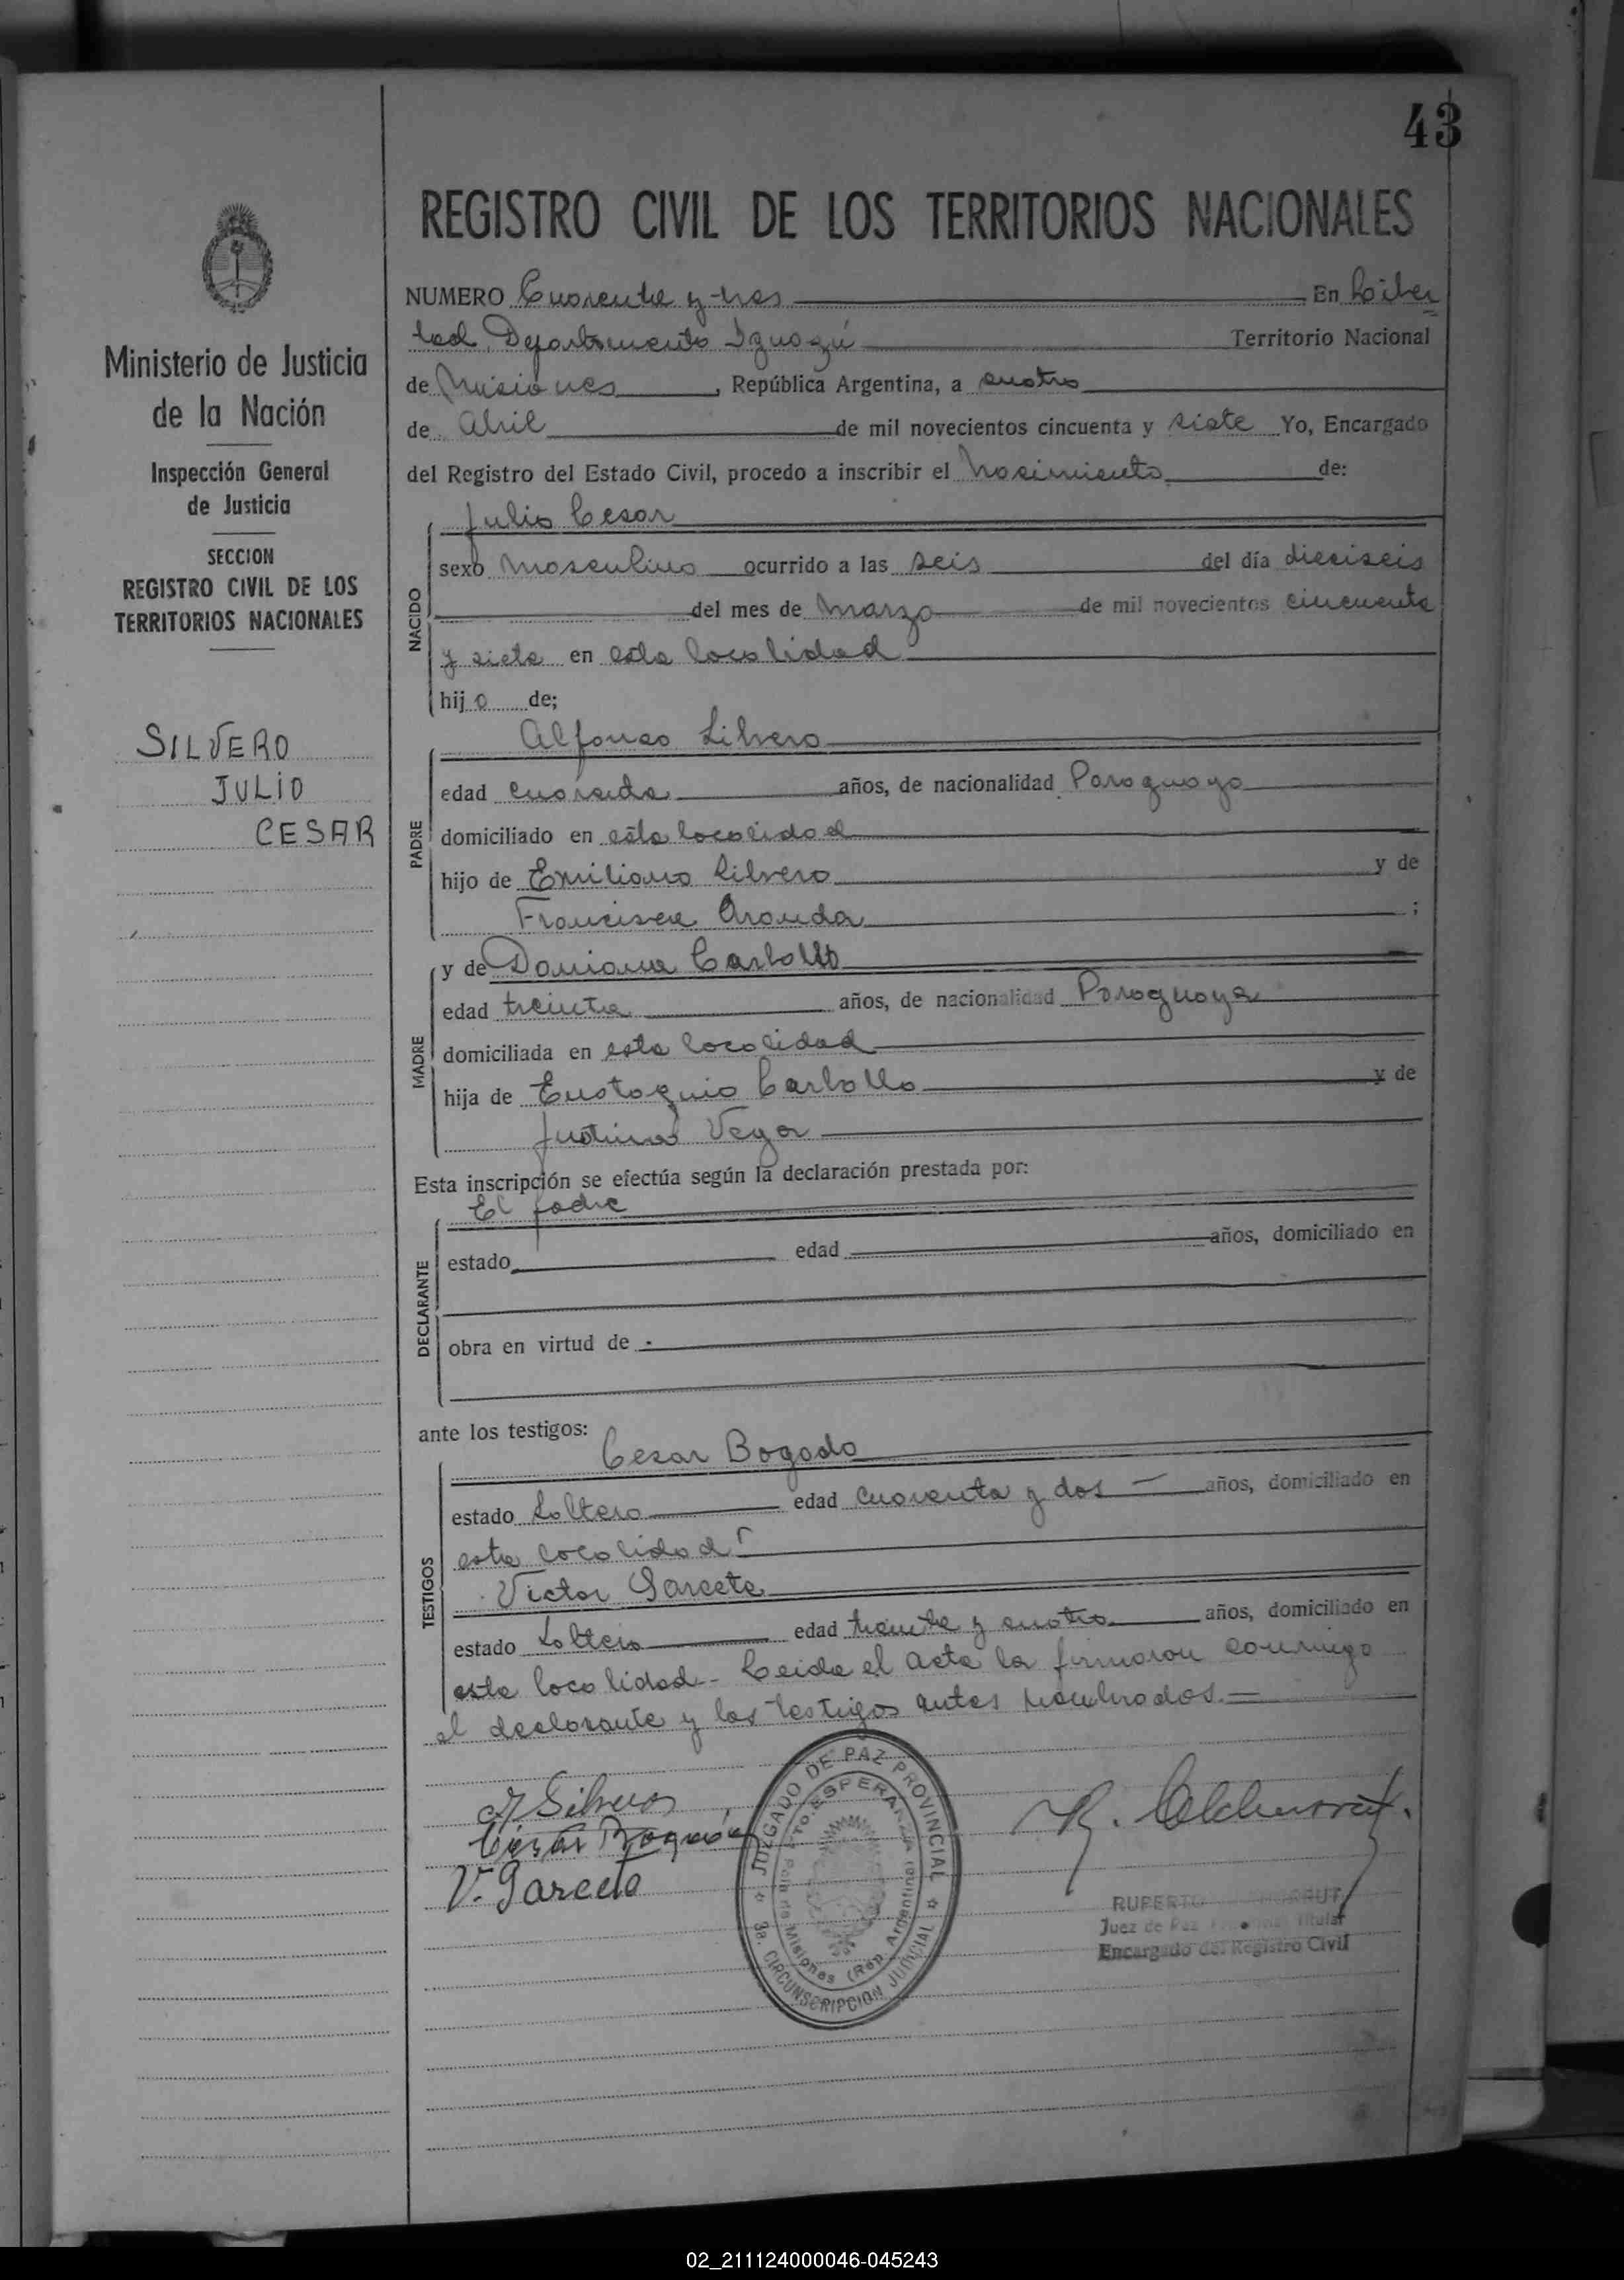 43
REGISTRO CIVIL DE LOS TERRITORIOS NACIONALES
Ministerio de Justicia
de la Nación
Inspección General
de Justicia
SECCION
REGISTRO CIVIL DE LOS
TERRITORIOS NACIONALES
SILVERO
JULIO
CESAR
NUMERO Cuarenta y tres En Liber
tad, Departamento Iguazú Territorio Nacional
de Misiones, República Argentina, a cuatro
de Abril de mil novecientos cincuenta y siete Yo, Encargado
del Registro del Estado Civil, procedo a inscribir el Nacimiento de:
NACIDO
Julio Cesar
sexo masculino ocurrido a las seis del día dieciseis
del mes de Marzo de mil novecientos cincuenta
y siete en esta localidad
hijo de;
PADRE
Alfonso Silvero
edad cuarenta años, de nacionalidad Paraguayo
domiciliado en esta localidad
hijo de Emiliano Silvero y de
Francisca Aranda ;
MADRE
y de Damiana Carballo
edad treinta años, de nacionalidad Paraguaya
domiciliada en esta localidad
hija de Eustaquio Carballo y de
Justina Vega
Esta inscripción se efectúa según la declaración prestada por:
DECLARANTE
El padre
estado edad años, domiciliado en
obra en virtud de -
ante los testigos:
TESTIGOS
Cesar Bogado
estado Soltero edad cuarenta y dos — años, domiciliado en
esta localidad
Victor Garcete
estado Soltero edad treinta y cuatro años, domiciliado en
esta localidad - Leida el acta la firmaron conmigo
el declarante y los testigos antes nombrados.=
A Silvero
César Bogado
V. Garcete
JUZGADO DE PAZ PROVINCIAL
3a. CIRCUNSCRIPCION JUDICIAL
PTO. ESPERANZA
Pcia de Misiones (Rep. Argentina)
RUPERTO
Juez de Paz Titular
Encargado del Registro Civil
02_211124000046-045243